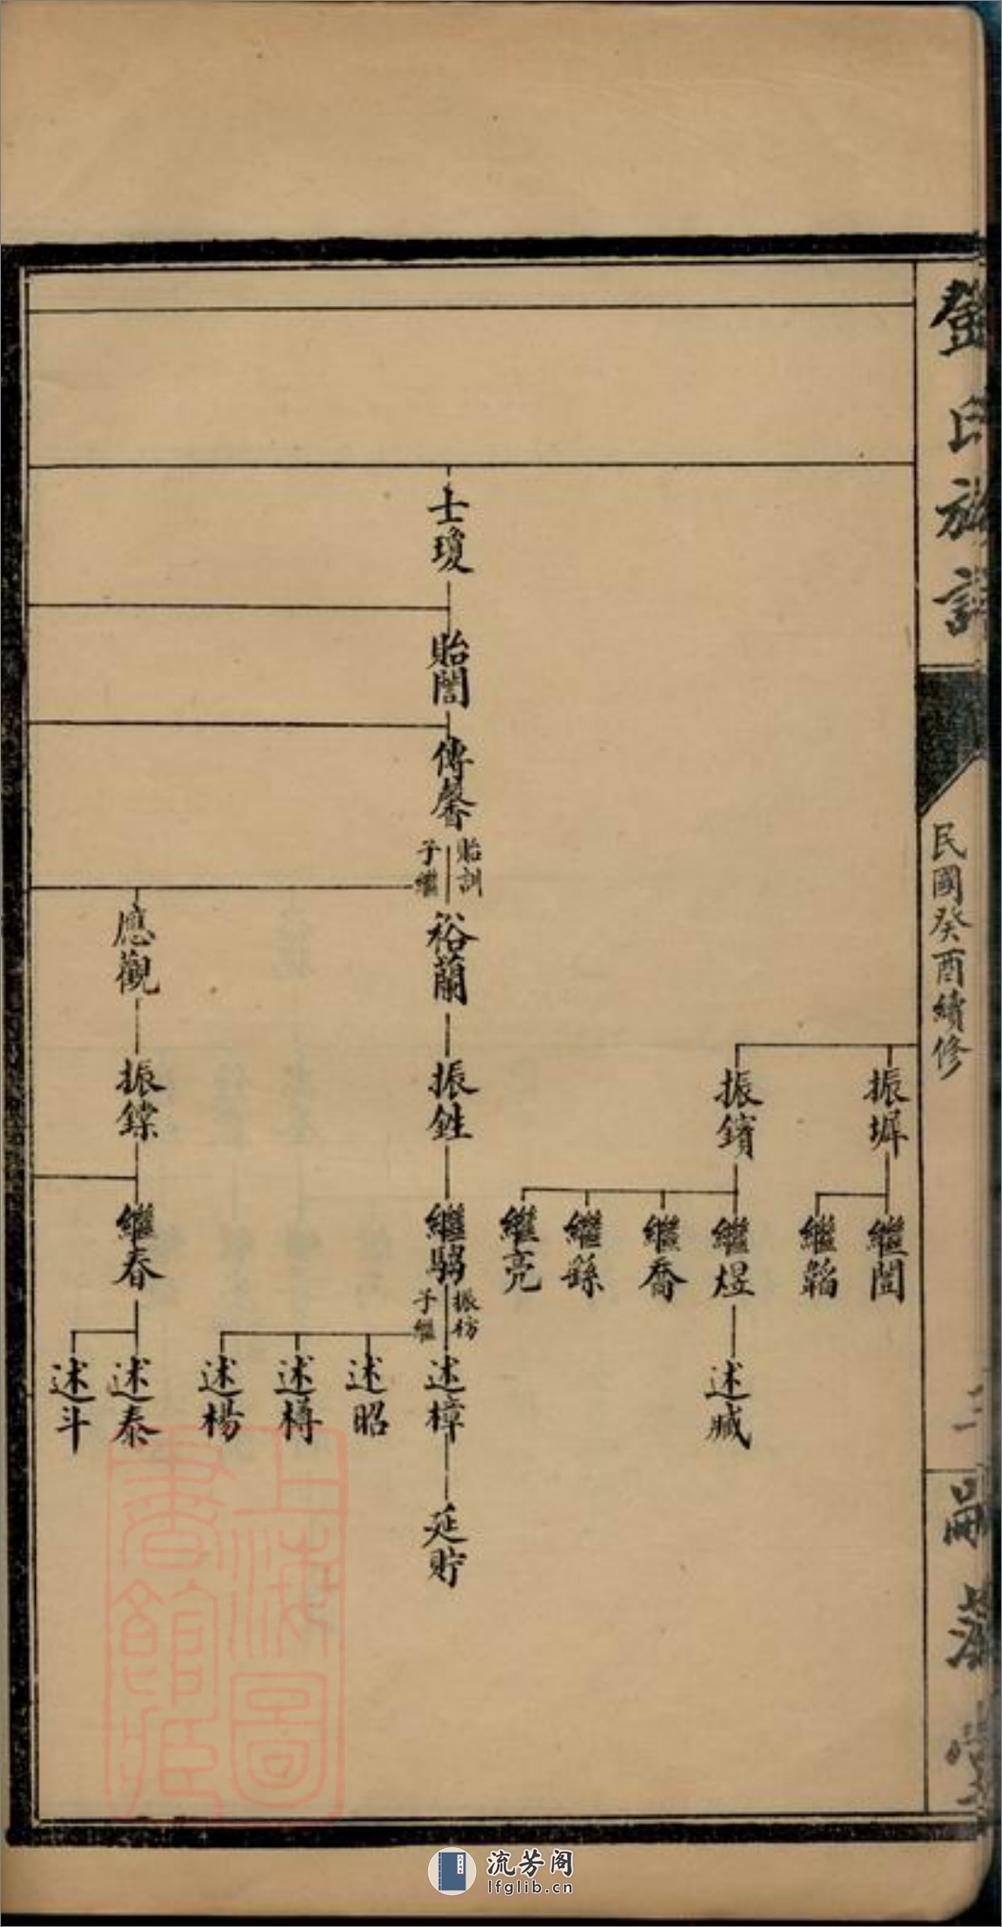 鄧氏族譜
民國癸酉續修
三
嗣
堂
振墀
繼闓
繼韜
振鑌
繼煜
繼喬
繼繇
繼亮
述臧
士瓊
貽誾
傳馨
貽訓
子繼
裕蘭
振鉎
繼騶
振彷
子繼
述樟
述昭
述樽
述楊
延貯
應觀
振鏿
繼春
述泰
述斗
上海圖
書館藏
流芳阁
lfglib.cn